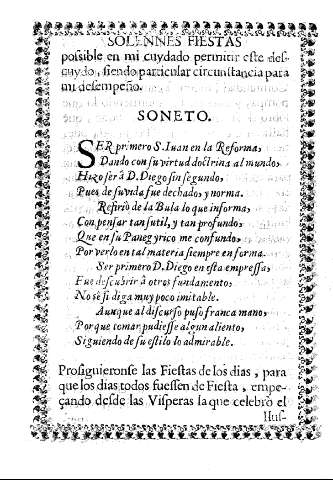 SOLENNES FIESTAS
possible en mi cuydado permitir este des-
cuydo, siendo particular circunstancia para
mi desempeño.
SONETO.
SER primero S. Iuan en la Reforma,
Dando con su virtud doctrina al mundo,
Hizo ser â D. Diego sin segundo,
Pues de su vida fue dechado, y norma.
Refirio de la Bula lo que informa,
Con pensar tan sutil, y tan profundo,
Que en su Panegyrico me confundo,
Por verlo en tal materia siempre en forma.
Ser primero D. Diego en esta empressa,
Fue descubrir â otros fundamento;
No sè si diga muy poco imitable.
Aunque al discurso puso franca mano,
Porque tomar pudiesse algun aliento,
Siguiendo de su estilo lo admirable.
Prosiguieronse las Fiestas de los dias, para
que los dias todos fuessen de Fiesta, empe-
çando desde las Visperas la que celebrò el
Ilus-